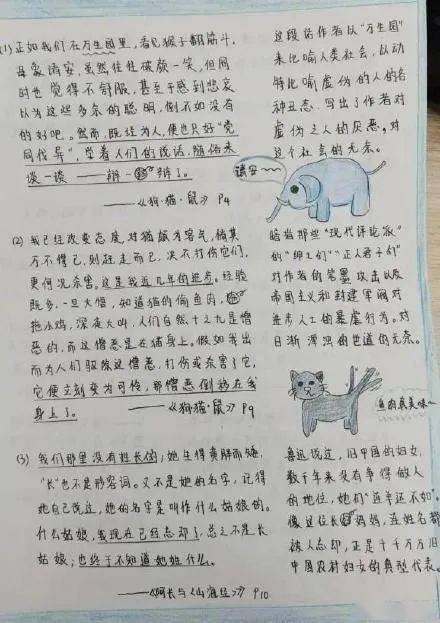 (1)正如我们在万生园里,看见猴子翻筋斗,
母象请安,虽然往往破颜一笑,但同
时也觉得不舒服,甚至于感到悲哀
以为这些多余的聪明,倒不如没有
的好吧。然而,既经为人,便也只好“党
同伐异”,学着人们的说话,随俗来
谈一谈——辩一辩了。
——《狗·猫·鼠》P4
这段话作者从“万生园”
来比喻人类社会,以动
物比喻虚伪的人的各
种丑态,写出了作者对
虚伪之人的厌恶。对
这个社会的无奈。
请安~~~
(2)我已经改变态度,对猫颇为客气,倘其
万不得已,则赶走而已,决不打伤它们,
更何况杀害。这是我近几年的进步。经验
既多,一旦大悟,知道猫的偷鱼肉,
拖小鸡,深夜大叫,人们自然十之九是憎
恶的,而这憎恶是在猫身上。假如我出
而为人们驱除这憎恶,打伤或杀害了它,
它便立刻变为可怜,那憎恶倒移在我
身上了。
——《狗·猫·鼠》P9
暗指那些“现代评论派”
的“绅士们”“正人君子们”
对作者的笔墨攻击以及
帝国主义和封建军阀对
进步人士的暴虐行为。对
日渐浑浊的世道的无奈。
鱼的真美味~
(3)我们那里没有姓长的;她生得黄胖而矮,
“长”也不是形容词。又不是她的名字,记得
她自己说过,她的名字是叫作什么姑娘的。
什么姑娘,我现在已经忘却了,总之不是长
姑娘;也终于不知道她姓什么。
——《阿长与《山海经》》P10
鲁迅说过,旧中国的妇女,
数千年来没有争得做人
的地位,她们“连羊还不如”。
像这位长妈妈,连姓名都
被人忘却,正是千千万万旧
中国农村妇女的典型代表。